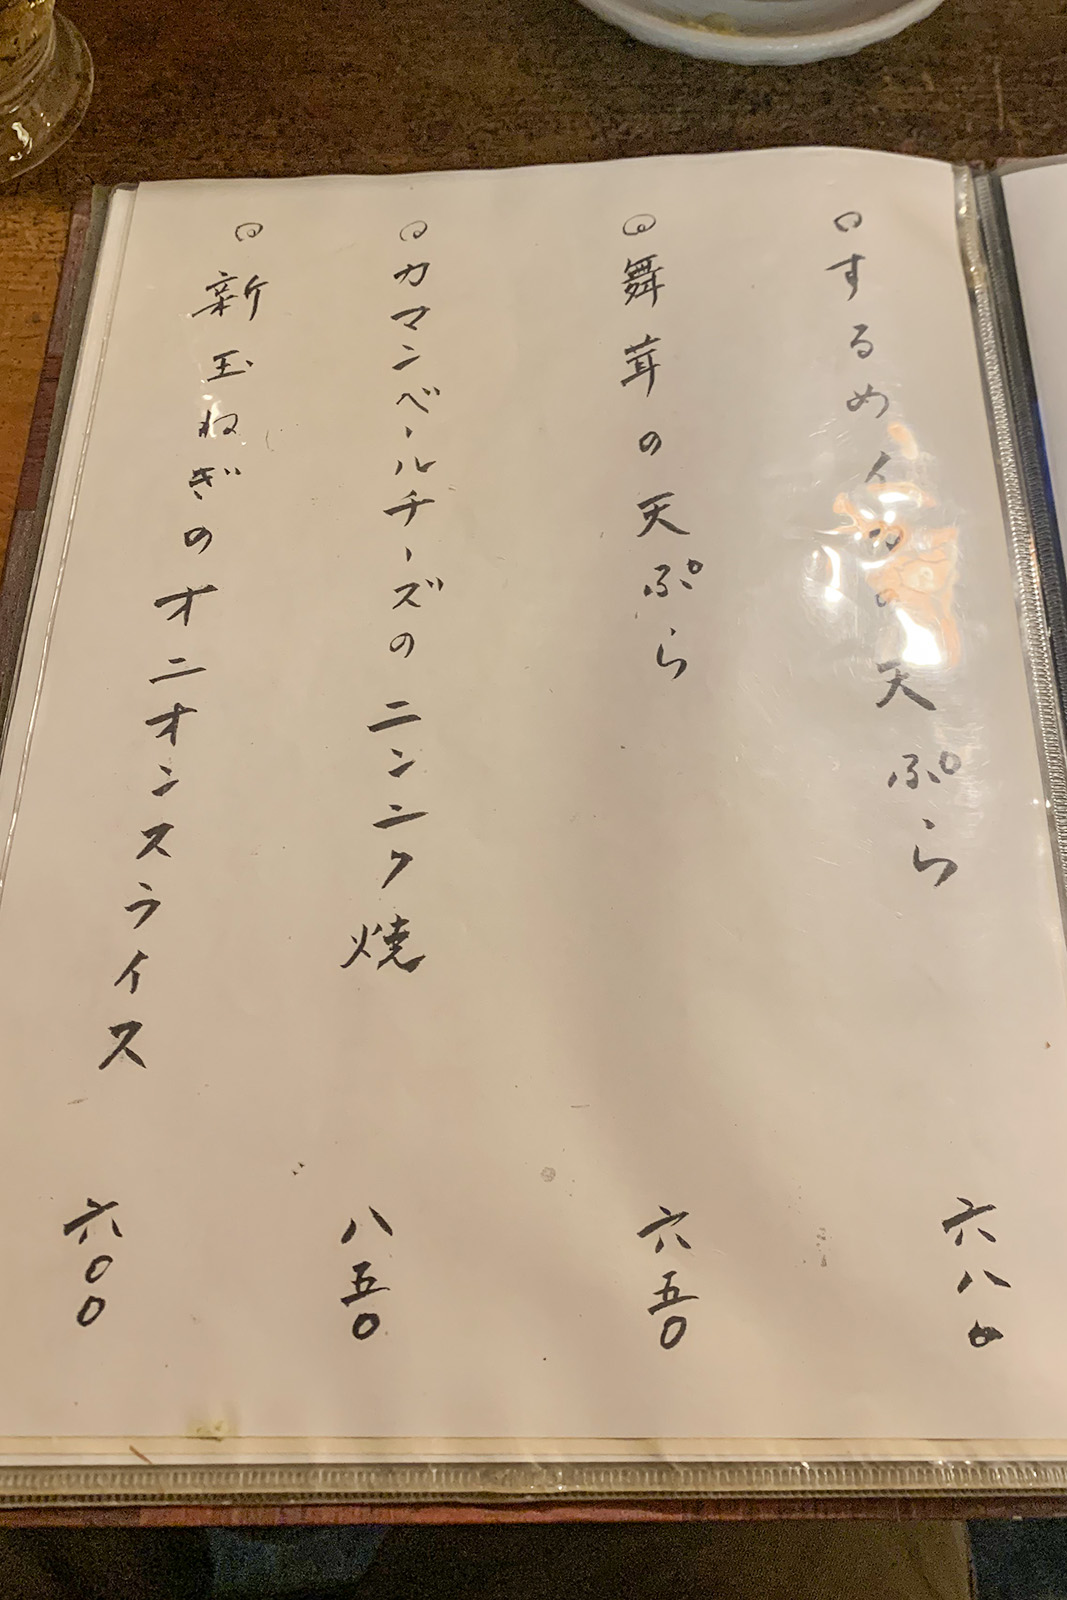 するめイカの天ぷら 六八〇
舞茸の天ぷら 六五〇
カマンベールチーズのニンニク焼 八五〇
新玉ねぎのオニオンスライス 六〇〇